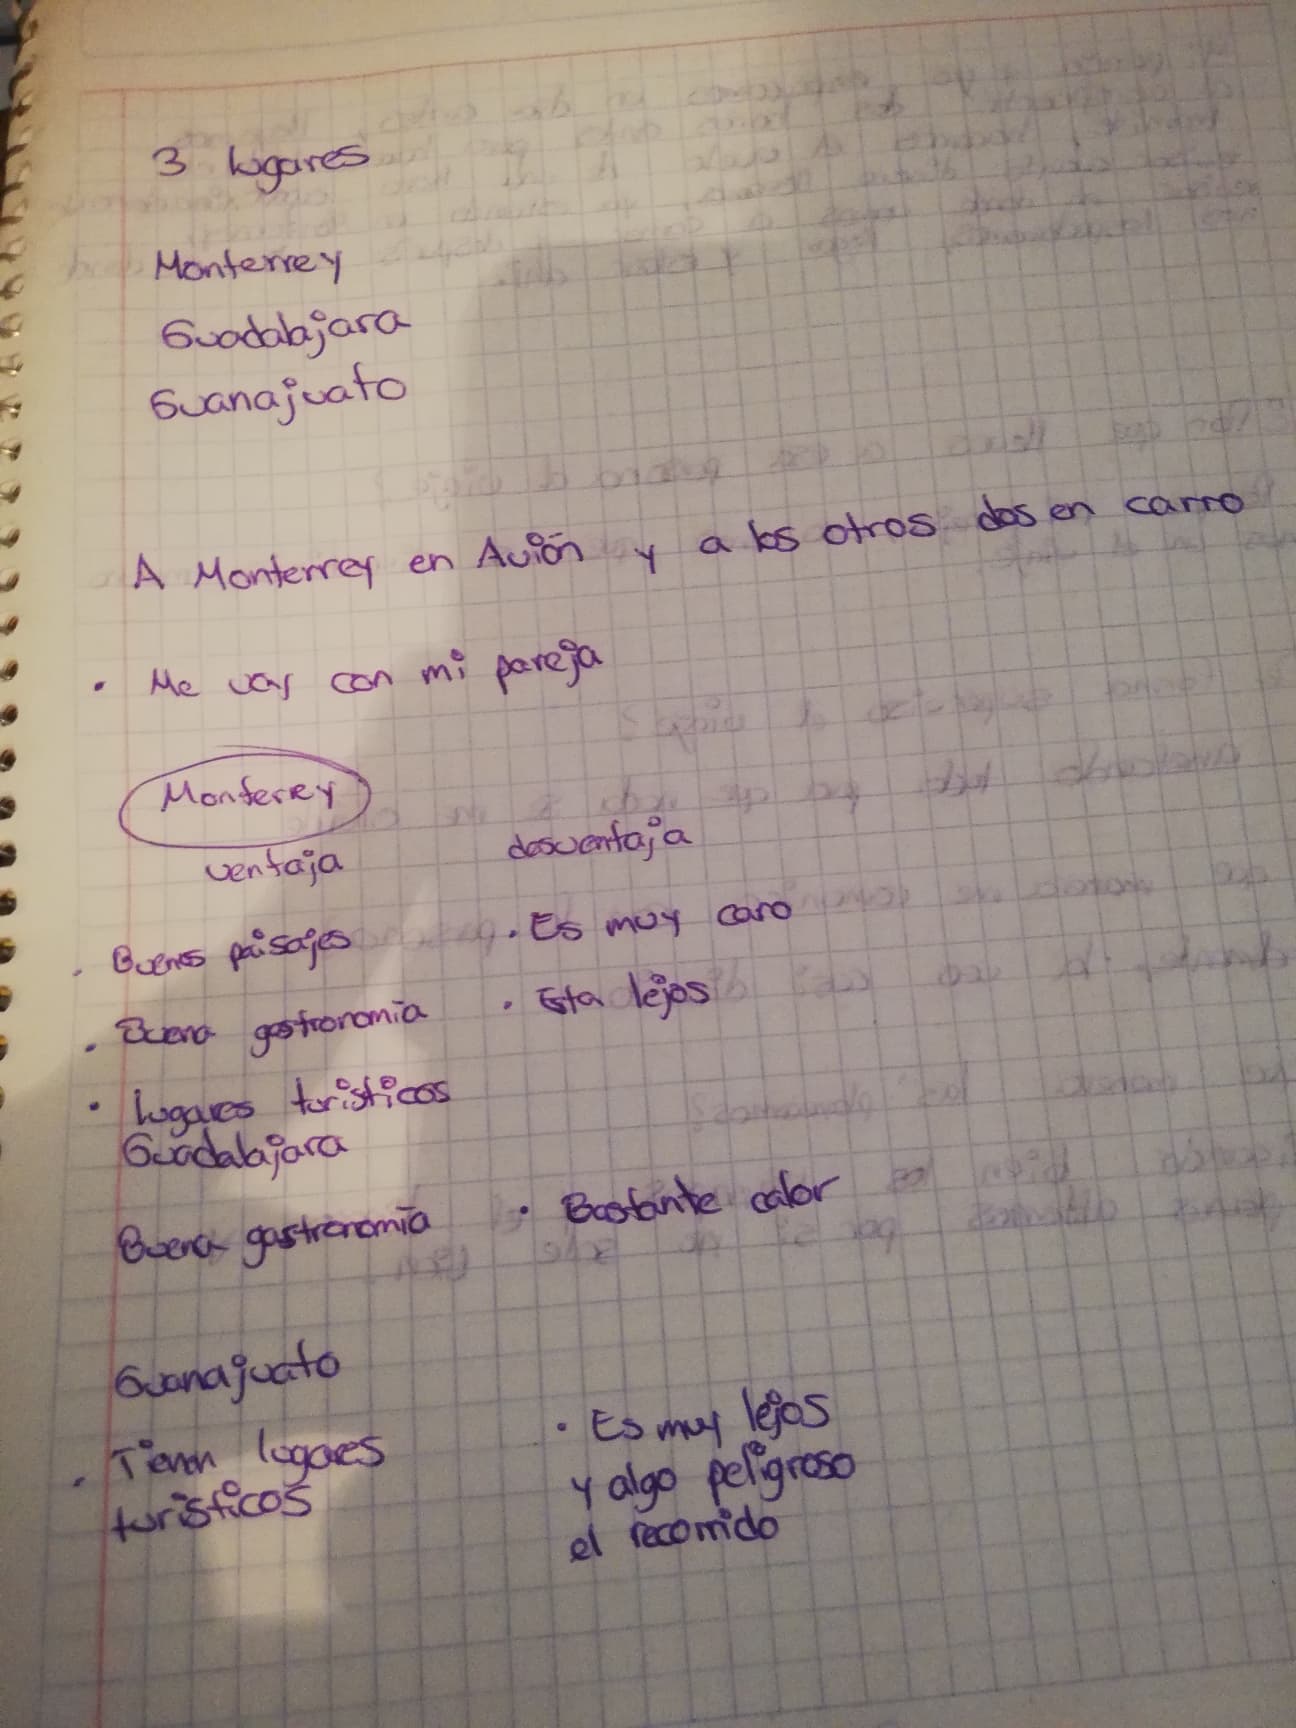 3 lugares
Monterrey
Guadalajara
Guanajuato
A Monterrey en Avión y a los otros dos en carro
• Me voy con mi pareja
Monterrey
ventaja desventaja
• Buenos paisajes • Es muy caro
• Buena gastronomía • Esta lejos
• lugares turísticos
Guadalajara
Buena gastronomía • Bastante calor
Guanajuato
• Tienen lugares • Es muy lejos
turísticos y algo peligroso
el recorrido